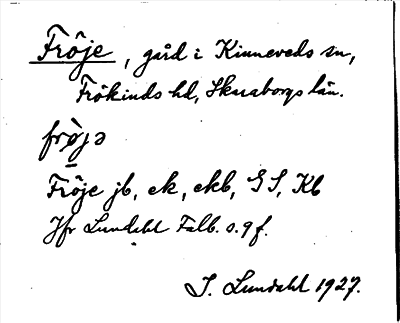 Fröje, gård i Kinneveds sn,
Frökinds hd, Skaraborgs län.
frö̀jə
Fröje jb, ek, ekb, GS, Kb
Jfr Lundahl Falb. s. 9 f.
I. Lundahl 1927.